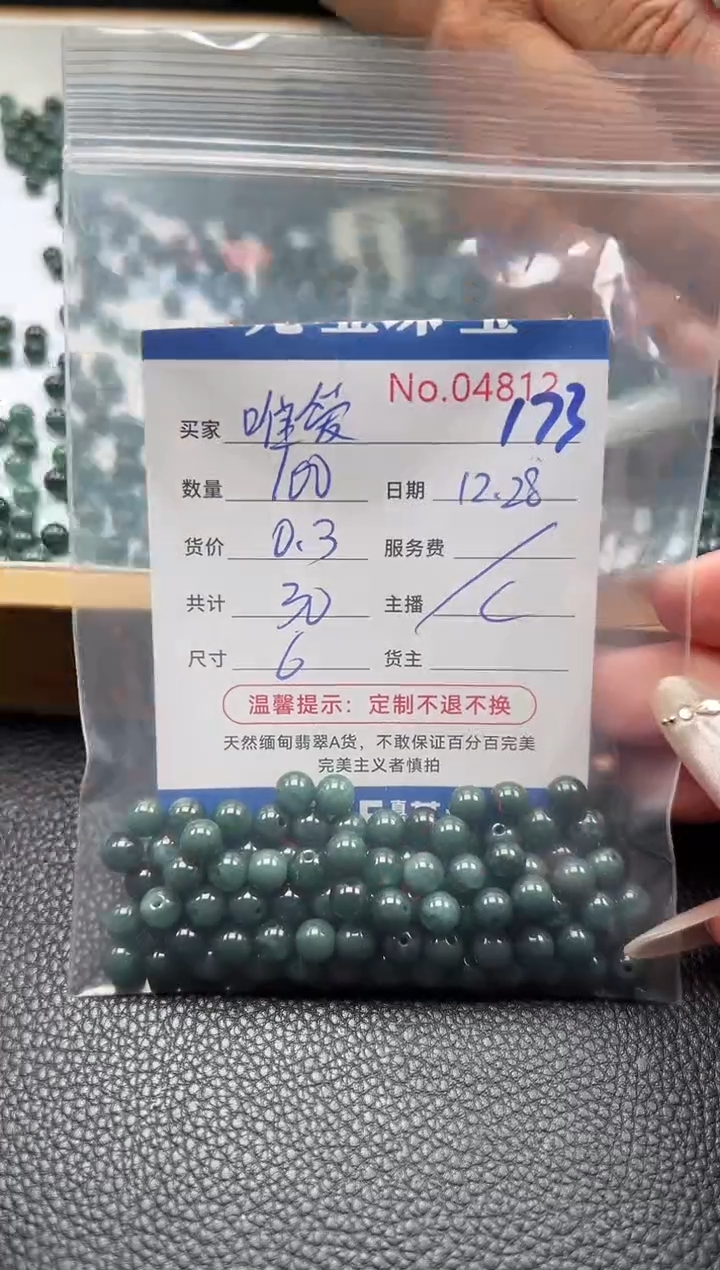 No.04812
173
买家 唯爱
数量 100 日期 12.28
货价 0.3 服务费 /
共计 30 主播 C
尺寸 6 货主
温馨提示：定制不退不换
天然缅甸翡翠A货，不敢保证百分百完美
完美主义者慎拍